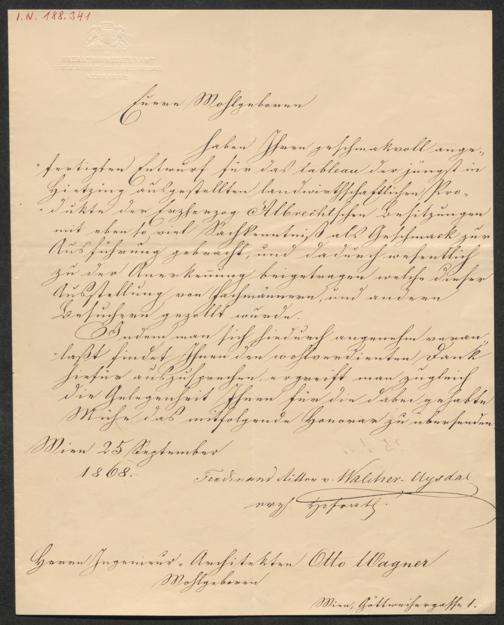 I.N. 188.341
Euere Wohlgeboren
haben Ihren geschmakvoll ange-
fertigten Entwurf für das tableau der jüngst in
Hietzing ausgestellten landwirthschaftlichen Pro-
dukte der Erzherzog Albrecht'schen Besitzungen
mit eben so viel Sachkenntniß als Geschmack zur
Ausführung gebracht, und dadurch wesentlich
zu der Anerkennung beigetragen welche dieser
Ausstellung von Fachmännern, und andern
Besuchern gezollt wurde.
Indem man sich hiedurch angenehm veran-
laßt findet Ihnen den wohlverdienten Dank
hiefür auszusprechen, ergreift man zugleich
die Gelegenheit Ihnen für die dabei gehabte
Mühe das mitfolgende Honorar zu übersenden
Wien 25 September
1868.
Ferdinand Ritter v. Walcher-Uysdal
erzh. Hofrath.
Herrn Ingenieur-Architekten Otto Wagner
Wohlgeboren
Wien, Göttweihergasse 1.